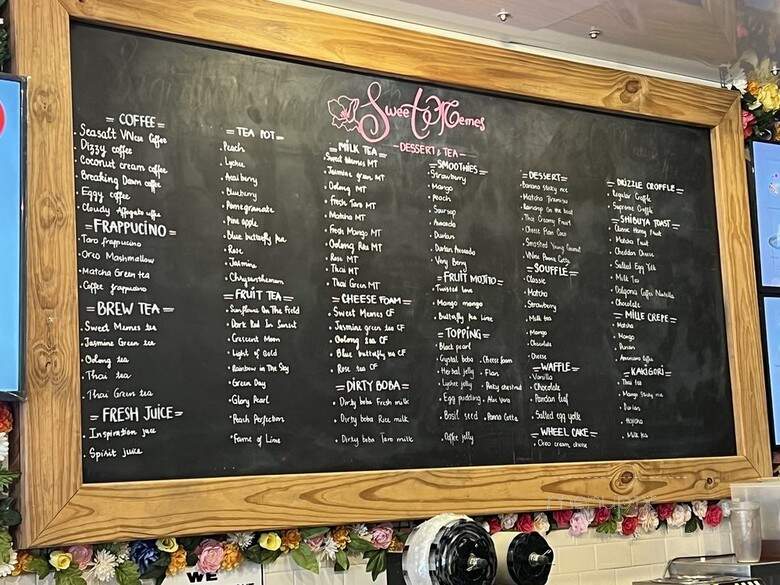 Sweet Memes
DESSERT & TEA
= COFFEE =
Seasalt VNese Coffee
Dizzy coffee
Coconut cream coffee
Breaking Dawn coffee
Eggy coffee
Cloudy Affogato coffee
= FRAPPUCINO =
Taro frappucino
Oreo Marshmallow
Matcha Green tea
Coffee frappucino
= BREW TEA =
Sweet Memes tea
Jasmine Green tea
Oolong tea
Thai tea
Thai Green tea
= FRESH JUICE =
Inspiration juice
Spirit juice
= TEA POT =
Peach
Lychee
Acai berry
Blueberry
Pomegranate
Pine apple
Blue butterfly Pea
Rose
Jasmine
Chrysanthemum
= FRUIT TEA =
Sunflower On The Field
Dark Red In Sunset
Crescent Moon
Light of Gold
Rainbow in The Sky
Green Day
Glory Pearl
Peach Perfection
Fame of Lime
= MILK TEA =
Sweet Memes MT
Jasmine green MT
Oolong MT
Fresh Taro MT
Matcha MT
Fresh Mango MT
Oolong Rose MT
Rose MT
Thai MT
Thai Green MT
= CHEESE FOAM =
Sweet Memes CF
Jasmine green tea CF
Oolong tea CF
Blue butterfly tea CF
Rose tea CF
= DIRTY BOBA =
Dirty boba Fresh milk
Dirty boba Rice milk
Dirty boba Taro milk
= SMOOTHIES =
Strawberry
Mango
Peach
Soursop
Avocado
Durian
Durian Avocado
Very Berry
= FRUIT MOJITO =
Twisted love
Mango mango
Butterfly Pea Lime
= TOPPING =
Black pearl
Crystal boba
Herbal jelly
Lychee jelly
Egg pudding
Basil seed
Coffee jelly
Cheese foam
Flan
Rocky chestnut
Aloe Vera
Panna Cotta
= DESSERT =
Banana sticky rice
Matcha Tiramisu
Banana On the boat
Thai Creamy Fruit
Cheese Flan Cake
Smashed Young Coconut
VNese Panna Cotta
= SOUFFLE =
Classic
Matcha
Strawberry
Milk tea
Mango
Chocolate
Cheese
= WAFFLE =
Vanilla
Chocolate
Pandan leaf
Salted egg yolk
= WHEEL CAKE =
Oreo cream cheese
= DRIZZLE CROFFLE =
Regular Croffle
Supreme Croffle
= SHIBUYA TOAST =
Classic Honey Fruit
Matcha Fruit
Cheddar Cheese
Salted Egg Yolk
Milk Tea
Dalgona Coffee Nutella
Chocolate
= MILLE CREPE =
Matcha
Mango
Durian
Americano Coffee
= KAKIGORI =
Thai tea
Mango Sticky rice
Durian
Hojicha
Milk tea
WE